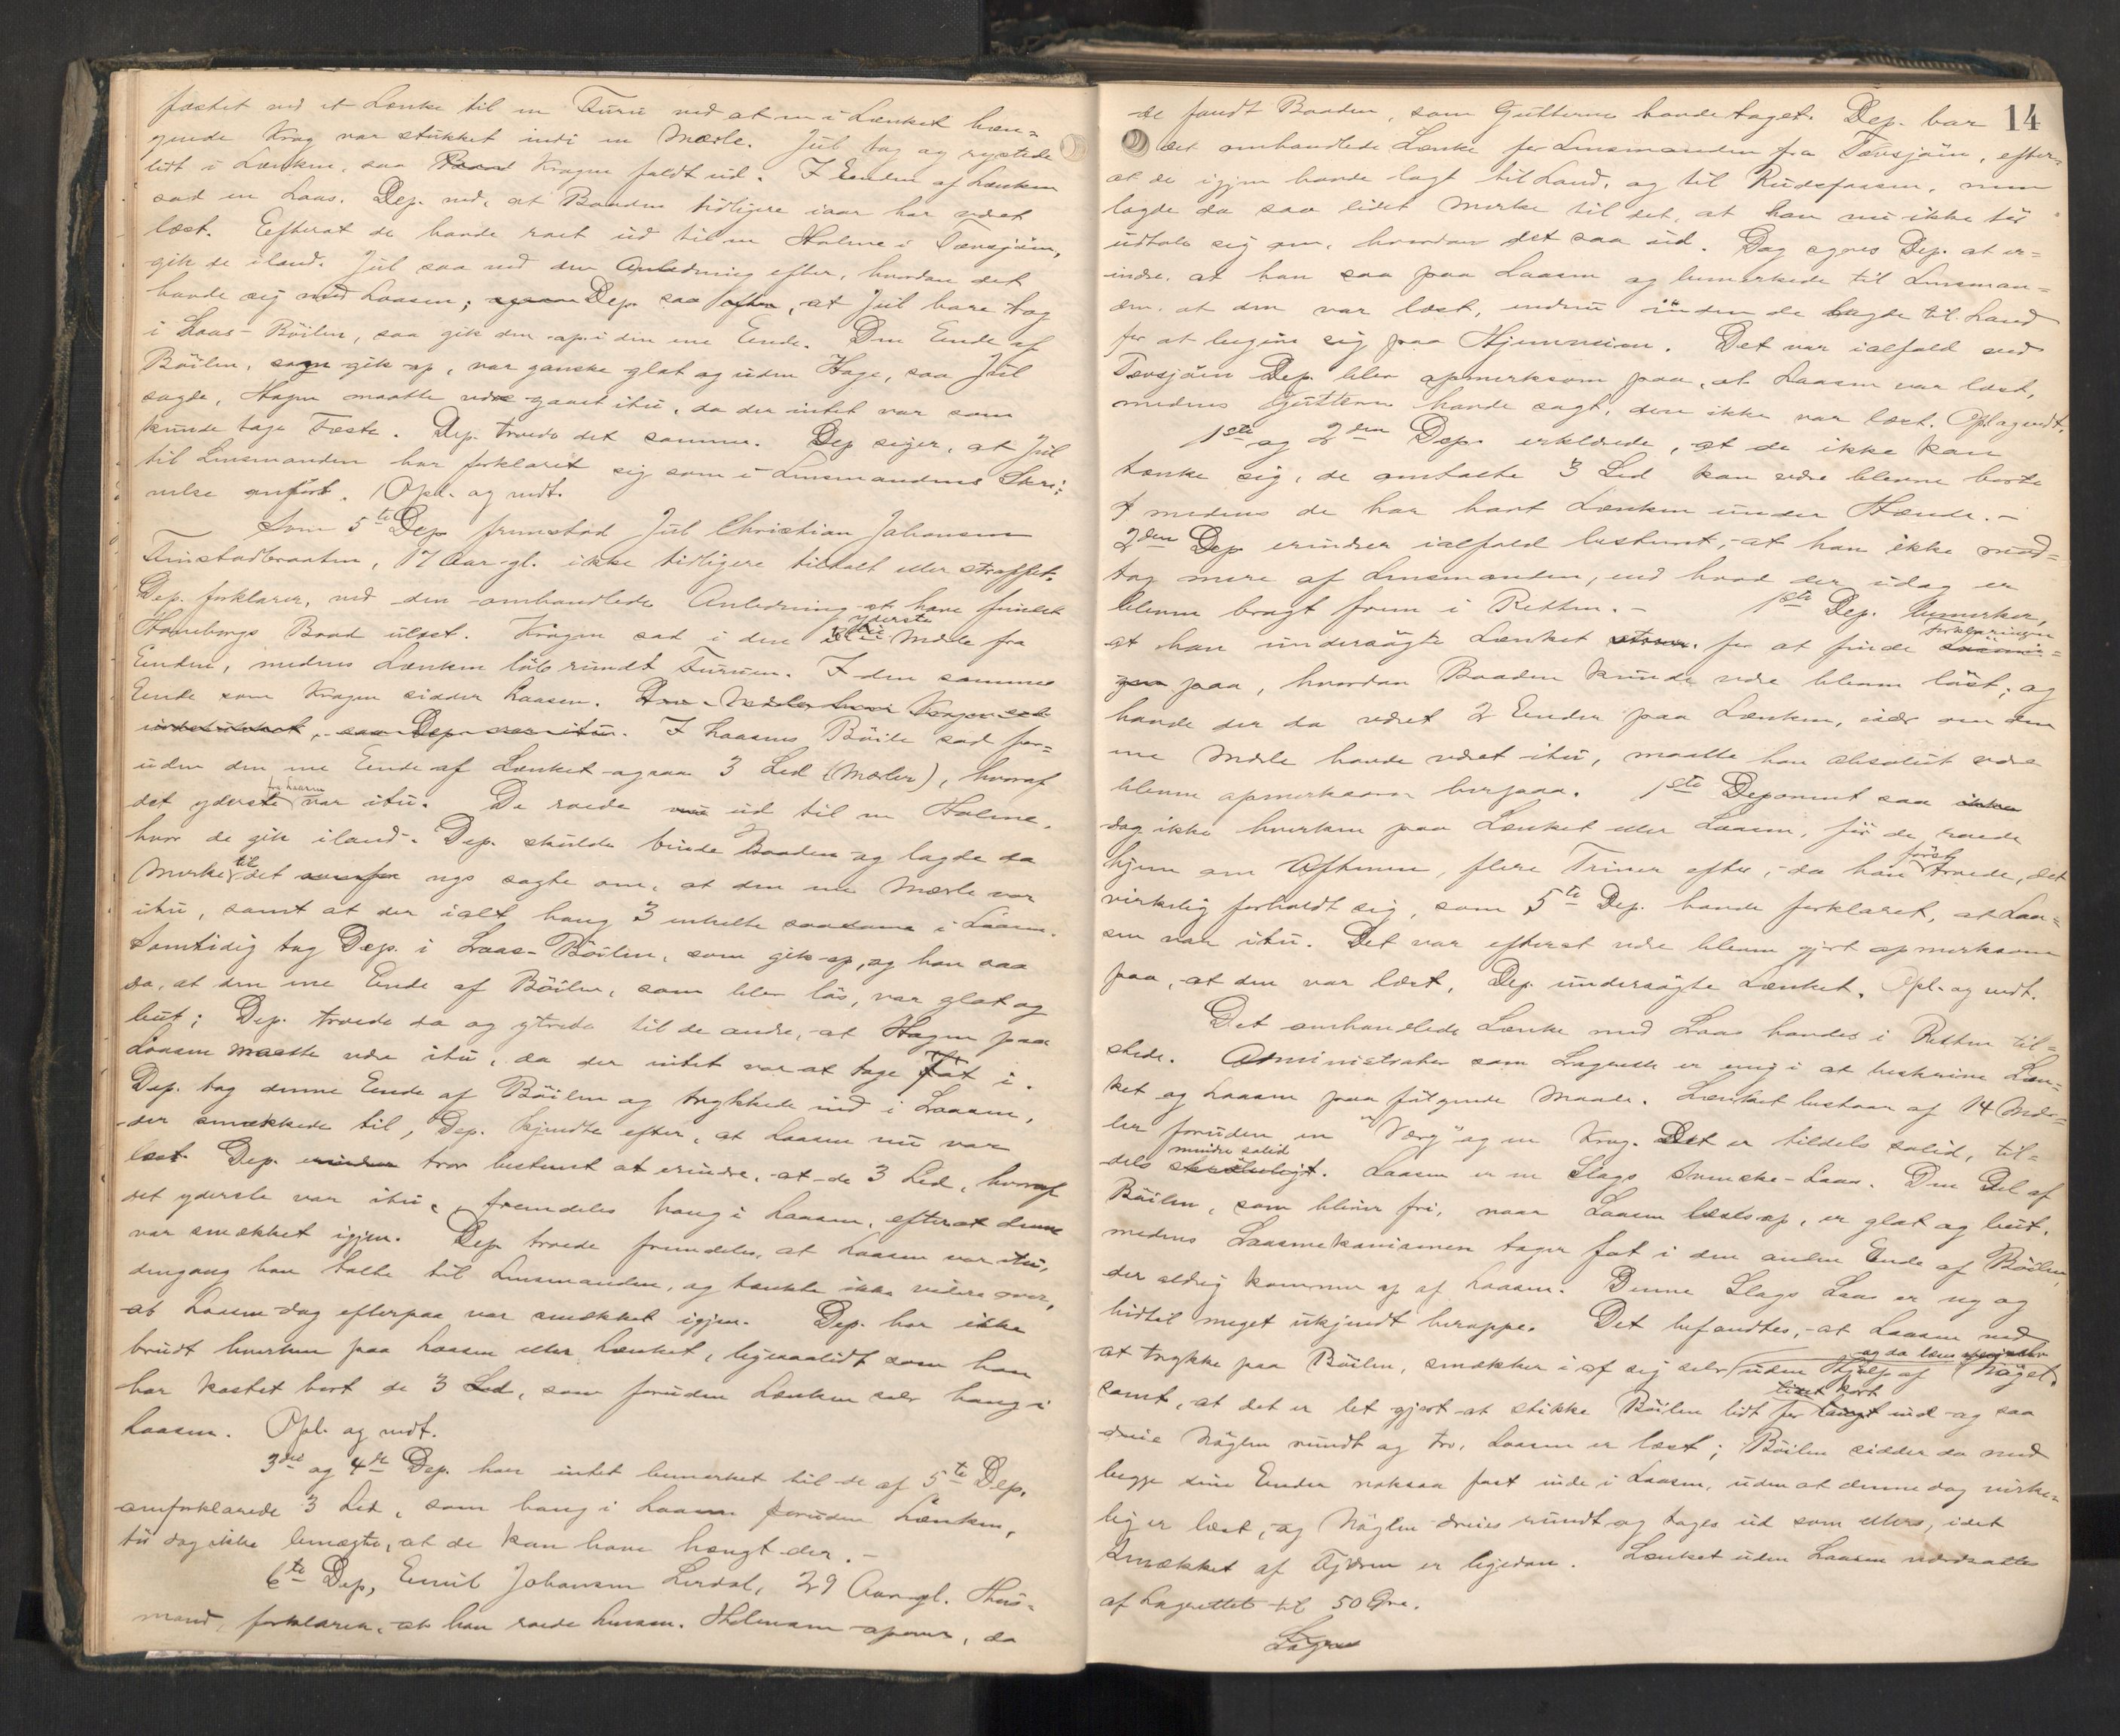 fæstet ved et Lænke til en Furu ved at en i Lænket hæn=
gende Krog var stukket indi en Mærle. Juel tog og rystede
lidt i Lænken, saa Krogen faldt ud. I Enden af Lænken
sad en Laas. Dep. ved, at Baaden tidligere iaar har været
læst. Efterat de havde roet ud til en Holme i Tævsjøen,
gik de iland. Juel saa ved den Anledning efter, hvordan det
havde sig med Laasen; Dep. saa, at Juel bare tog
i Laas-Bøilen, saa gik den op i den ene Ende. Den Ende af
Bøilen, som gik op, var ganske glat og uden Hage, saa Juel
sagde, Hagen maatte være gaaet itu, da der intet var som
kunde tage Fæste. Dep. troede det samme. Dep. siger, at Juel
til Linsmanden har forklaret sig som i Linsmandens Skri=
velse anført. Opl. og vedt.
Som 5te Dep. fremstod Juel Christian Johansen
Finstadbraaten, 17 Aar gl. ikke tidligere tiltalt eller straffet.
Dep. forklarer, ved den omhandlede Anledning at have fundet
Haneborgs Baad ulæst. Krogen sad i den yderste Mærle fra
Enden, medens Lænken løb rundt Furuen. I den samme
Ende som Krogen sidder Laasen. Den Mærle hvor Krogen sad
, saa Dep. var itu. I Laasens Bøile sad for=
uden den ene Ende af Lænket ogsaa 3 Led (Mærler), hvoraf
det yderste fra Laasen var itu. De roede ud til en Holme,
hvor de gik iland. Dep. skulde binde Baaden og lagde da
Mærke til det ogs sagte om, at den ene Mærle var
itu, samt at der ialt hang 3 enkelte saadanne i Laasen.
Samtidig tog Dep. i Laas-Bøilen, som gik op, og han saa
da, at den ene Ende af Bøilen, som blev løs, var glat og
but; Dep. troede da og ytrede til de andre, at Hagen paa
Laasen maatte være itu, da der intet var at tage Fat i.
Dep. tog denne Ende af Bøilen og trykkede ind i Laasen,
der smækkede til, Dep. kjendte efter, at Laasen nu var
læst. Dep. erindrer tror bestemt at erindre, at de 3 Led, hvoraf
det yderste var itu, fremdeles hang i Laasen, efterat denne
var smækket igjen. Dep. troede fremdeles, at Laasen var itu,
dengang han talte til Linsmanden, og tænkte ikke videre over,
at Laasen dog efterpaa var smækket igjen. Dep. har ikke
brudt hverken paa Laasen eller Lænket, ligesaalidt som han
har kastet bort de 3 Led, som foruden Lænken selv hang i
Laasen. Opl. og vedt.
3die og 4de Dep. har intet bemærket til de af 5te Dep.
omforklarede 3 Led, som hang i Laasen foruden Lænken,
tør dog ikke benægte, at de kan have hængt der.–
6te Dep, Emil Johansen Lerdal, 29 Aar gl. Hus=
mand, forklarer, at han roede hensam. Holmen opover, da
14
de fandt Baaden, som Gutterne havde taget. Dep. bar
det omhandlede Lænke for Linsmanden fra Tævsjøen, efter=
at de igjen havde lagt til Land, og til Rudsfossen, men
lagde da saa lidet Mærke til det, at han nu ikke tør
udtale sig om, hvordan det saa ud. Dog synes Dep. at er=
indre, at han saa paa Laasen og bemærkede til Linsman=
den, at den var læst, endnu inden de lagde til Land
for at begive sig paa Hjemveien. Det var ialfald ved
Tævsjøen Dep. blev opmærksom paa, at Laasen var læst,
medens Gutterne havde sagt, den ikke var læst. Opl og vedt.
1ste og 2den Dep. erklærede, at de ikke kan
tænke sig, de omtalte 3 Led kan være blevne borte
medens de har havt Lænken under Hænde.–
2den Dep. erindrer ialfald bestemt, at han ikke mod=
tog mere af Linsmanden, end hvad der idag er
bleven bragt frem i Retten.– 1ste Dep. bemærker,
at han undersøgte Lænket for at finde Forklaringen
paa, hvordan Baaden kunde være bleven løst; og
havde der da været 2 Ender paa Lænken, især om den
ene Mærle havde været itu, maatte han absolut være
bleven opmærksom herpaa. 1ste Deponent saa
dog ikke hverken paa Lænket eller Laasen, før de roede
hjem om Aftenen, flere Timer efter, da han først troede, det
virkelig forholdt sig, som 5te Dep. havde forklaret, at Laa=
sen var itu. Det var efterat være bleven gjort opmærksom
paa, at den var læst, Dep. undersøgte Lænket. Opl. og vedt.
Det omhandlede Lænke med Laas havdes i Retten til=
stede. Administrator som Lagrette er enig i at beskrive Læn=
ket og Laasen paa følgende Maade. Lænket bestaar af 14 Mær=
ler foruden en "Værg" og en Krog. Det er tildels solid, til=
dels mindre solid. Laasen er en Slags Svenske-Laas. Den Del af
Bøilen, som bliver fri, naar Laasen læses op, er glat og but,
medens Laasmekanismen tager fat i den anden Ende af Bøilen,
der aldrig kommer op af Laasen. Denne Slags Laas er ny og
hidtil meget ukjendt heroppe. Det befandtes, at Laasen ved
at trykke paa Bøilen, smækker i af sig selv uden Hjelp af Nøgel,
samt, at det er let gjort at stikke Bøilen lidt for kort ind og saa
dreie Nøglen rundt og tro, Laasen er læst; Bøilen sidder da med
begge sine Ender noksaa fast inde i Laasen, uden at denne dog virke=
lig er læst, og Nøglen dreies rundt og tages ud som ellers, idet
Smækket af Fjæren er ligedan. Lænket uden Laasen værdsattes
af Lagrettet til 50 Øre.